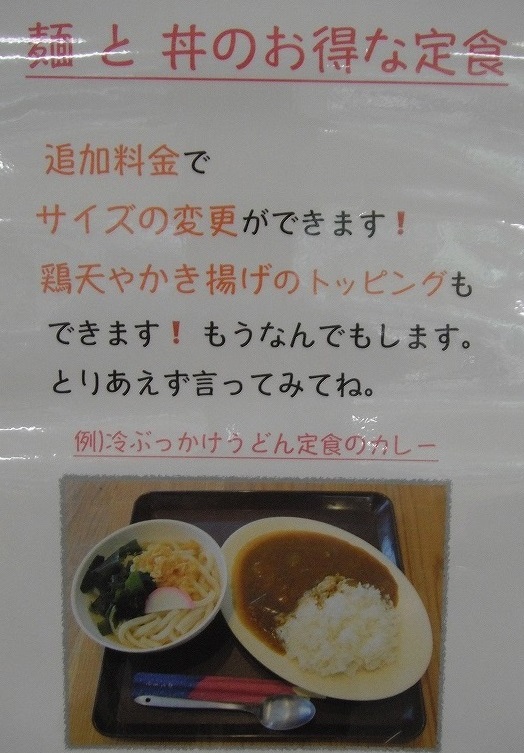 麺と丼のお得な定食
追加料金で
サイズの変更ができます！
鶏天やかき揚げのトッピングも
できます！もうなんでもします。
とりあえず言ってみてね。
例)冷ぶっかけうどん定食のカレー